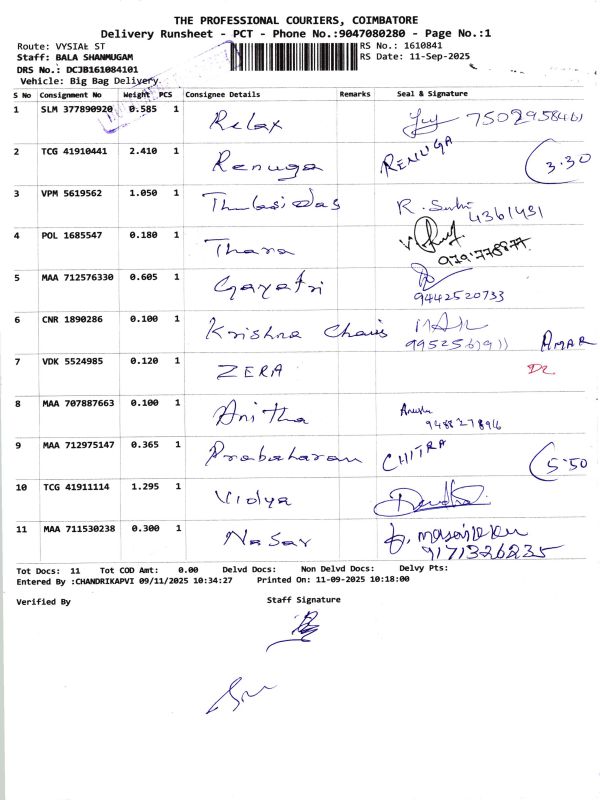 THE PROFESSIONAL COURIERS, COIMBATORE
Delivery Runsheet - PCT - Phone No.:9047080280 - Page No.:1
Route: VYSIAL ST RS No.: 1610841
Staff: BALA SHANMUGAM RS Date: 11-Sep-2025
DRS No.: DCJB161084101
Vehicle: Big Bag Delivery
S No Consignment No Weight PCS Consignee Details Remarks Seal & Signature
1 SLM 377890920 0.585 1 Relax 7502958461
2 TCG 41910441 2.410 1 Renuga RENUGA 3.30
3 VPM 5619562 1.050 1 Thulasidas R. 4361431
4 POL 1685547 0.180 1 Thara
5 MAA 712576330 0.605 1 Gayatri 9442520733
6 CNR 1890286 0.100 1 Krishna AMAR
7 VDK 5524985 0.120 1 ZERA
8 MAA 707887663 0.100 1 Anitha
9 MAA 712975147 0.365 1 Prabaharan CHITRA 5.50
10 TCG 41911114 1.295 1 Vidya
11 MAA 711530238 0.300 1 Nasar 9171326235
Tot Docs: 11 Tot COD Amt: 0.00 Delvd Docs: Non Delvd Docs: Delvy Pts:
Entered By :CHANDRIKAPVI 09/11/2025 10:34:27 Printed On: 11-09-2025 10:18:00
Verified By Staff Signature